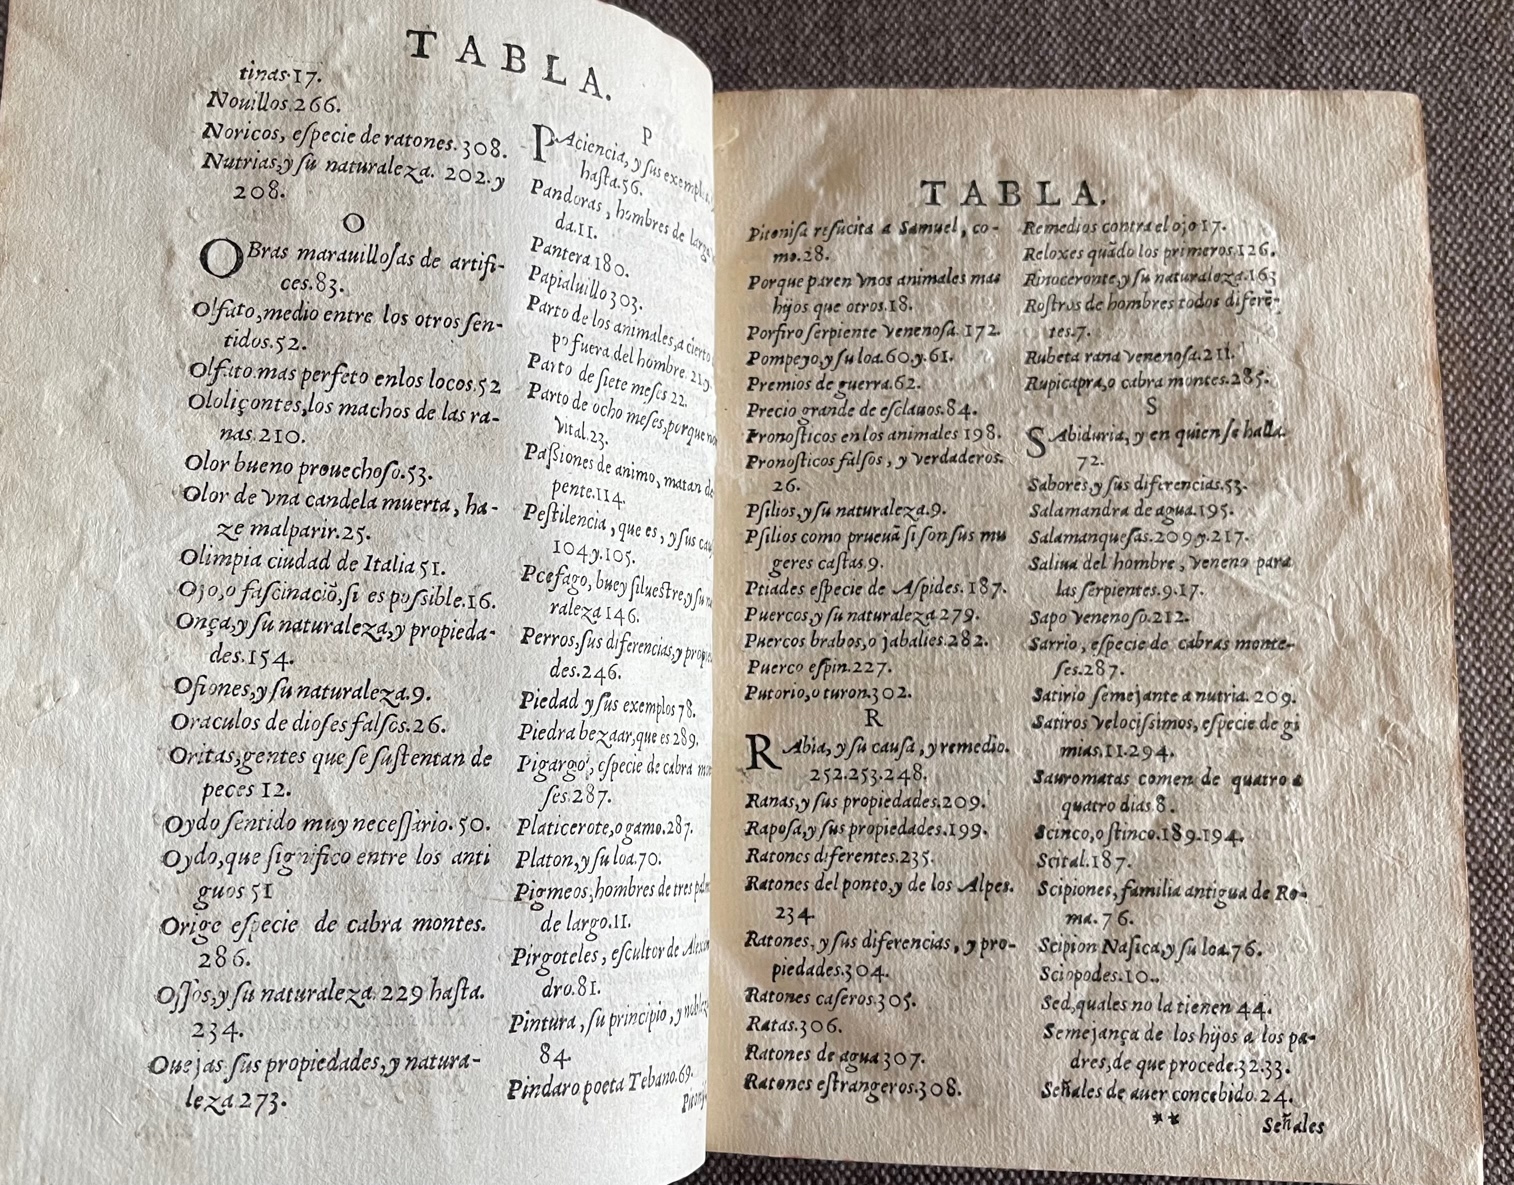 TABLA.
tinas.17.
Nouillos.266.
Noricos, eſpecie de ratones.308.
Nutrias,y ſu naturaleza. 202.y
208.
O
OBras marauilloſas de artifi-
ces.83.
Olfato,medio entre los otros ſen-
tidos.52.
Olfato mas perfeto enlos locos.52
Ololiçontes,los machos de las ra-
nas.210.
Olor bueno prouechoſo.53.
Olor de vna candela muerta, ha-
ze malparir.25.
Olimpia ciudad de Italia 51.
Ojo,o faſcinaciõ,ſi es poſsible.16.
Onça,y ſu naturaleza,y propieda-
des.154.
Ofiones,y ſu naturaleza.9.
Oraculos de dioſes falſos.26.
Oritas,gentes que ſe ſuſtentan de
peces 12.
Oydo ſentido muy neceſſario.50.
Oydo,que ſignifico entre los anti
guos 51
Orige eſpecie de cabra montes.
286.
Oſſos,y ſu naturaleza.229 haſta.
234.
Ouejas ſus propiedades,y natura-
leza.273.
P
PAciencia, y ſus exempl
haſta.56.
Pandoras, hombres de larga
da.11.
Pantera 180.
Papialuillo 303.
Parto de los animales,a cierto
po fuera del hombre. 219.
Parto de ſiete meſes 22.
Parto de ocho meſes,porque no
vital.23.
Paſsiones de animo, matan de
pente.114.
Peſtilencia, que es, y ſus cau
104.y.105.
Pcefago, buey ſilueſtre,y ſu na
raleza 146.
Perros,ſus diferencias,y propie
des.246.
Piedad y ſus exemplos 78.
Piedra bezaar,que es 289.
Pigargo, eſpecie de cabra mon
ſes.287.
Platicerote,o gamo.287.
Platon,y ſu loa.70.
Pigmeos,hombres de tres palm
de largo.11.
Pirgoteles, eſcultor de Alexan
dro.81.
Pintura, ſu principio, y nobleza
84.
Pindaro poeta Tebano.69.
TABLA.
Pitoniſa reſucita a Samuel, co-
mo.28.
Porque paren vnos animales mas
hijos que otros.18.
Porfiro ſerpiente venenoſa. 172.
Pompeyo,y ſu loa.60.y.61.
Premios de guerra.62.
Precio grande de eſclauos.84.
Pronoſticos en los animales 198.
Pronoſticos falſos, y verdaderos.
26.
Pſilios,y ſu naturaleza.9.
Pſilios como prueuã ſi ſon ſus mu
geres caſtas.9.
Ptiades eſpecie de Aſpides. 187.
Puercos,y ſu naturaleza.279.
Puercos brabos,o jabalies.282.
Puerco eſpin.227.
Putorio,o turon.302.
R
RAbia, y ſu cauſa, y remedio.
252.253.248.
Ranas,y ſus propiedades.209.
Rapoſa,y ſus propiedades.199.
Ratones diferentes.235.
Ratones del ponto,y de los Alpes.
234
Ratones, y ſus diferencias, y pro-
piedades.304.
Ratones caſeros.305.
Ratas.306.
Ratones de agua 307.
Ratones eſtrangeros.308.
Remedios contra el ojo 17.
Reloxes quãdo los primeros.126.
Rinoceronte,y ſu naturaleza.163
Roſtros de hombres todos diferẽ-
tes.7.
Rubeta rana venenoſa.211.
Rupicapra,o cabra montes.285.
S
SAbiduria, y en quien ſe halla.
72.
Sabores,y ſus diferencias.53.
Salamandra de agua.195.
Salamanqueſas.209.y.217.
Saliua del hombre, veneno para
las ſerpientes.9.17.
Sapo venenoſo.212.
Sarrio, eſpecie de cabras monte-
ſes.287.
Satirio ſemejante a nutria. 209.
Satiros velociſsimos, eſpecie de gi
mias.11.294.
Sauromatas comen de quatro a
quatro dias 8.
Scinco,o ſtinco.189.194.
Scital.187.
Scipiones, familia antigua de Ro-
ma.76.
Scipion Naſica,y ſu loa.76.
Sciopodes.10..
Sed,quales no la tienen 44.
Semejança de los hijos a los pa-
dres,de que procede.32.33.
Señales de auer concebido.24.
** Señales